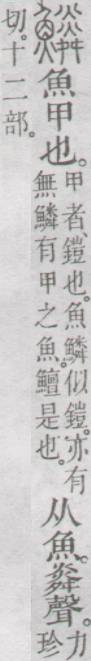 鱗魚甲也。甲者、鎧也。魚鱗似鎧。亦有無鱗有甲之魚。鱣是也。从魚。㷠聲。力珍
切。十二部。